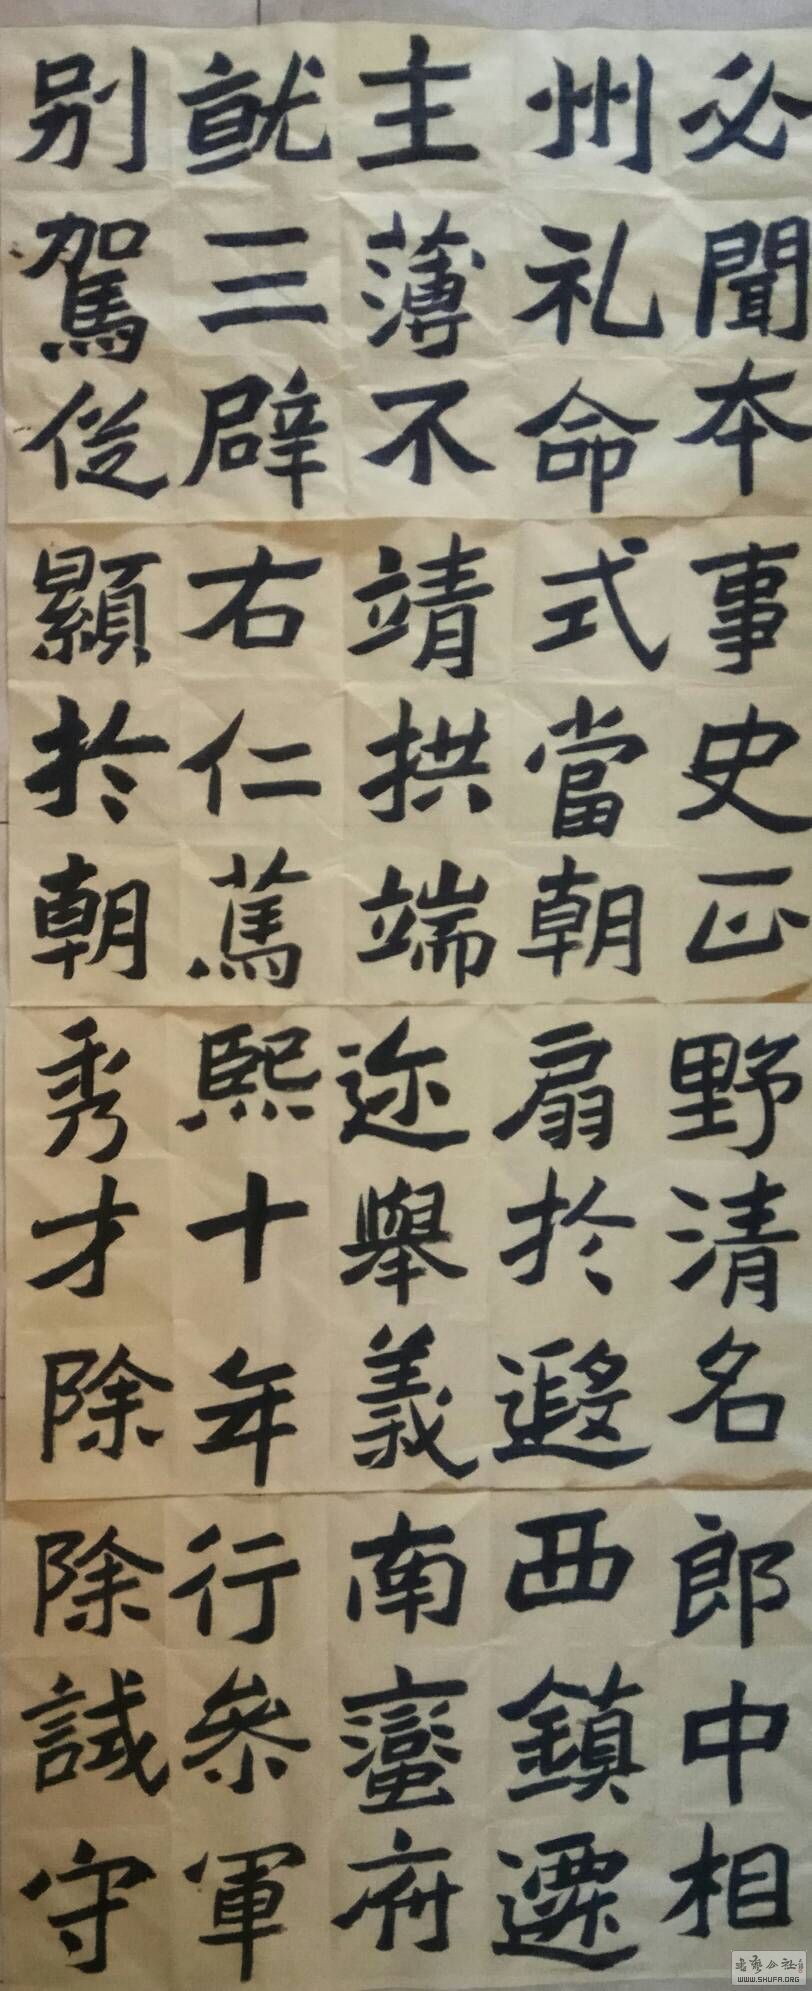 必聞本
州礼命
主薄不
就三辟
別駕從
事史正
式當朝
靖拱端
右仁篤
顯於朝
野清名
扇於遐
迩舉義
熙十年
秀才除
郎中相
西鎮遷
南蠻府
行參軍
除試守
书艺公社
WWW.SHUFA.ORG